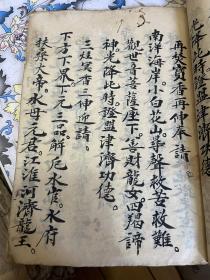 13
再焚寶香再伸奉請
南洋海岸小白花山尋聲救苦救難
觀世音菩薩座下。善財龍女。四揭諦
神光降此時。證盟津濟功德。
三炷寶香三伸迎請。
下方下界。下元三品。解厄水官。水府
扶桑大帝。水母元君。江淮河濟龍王。
光降此時證盟津濟功